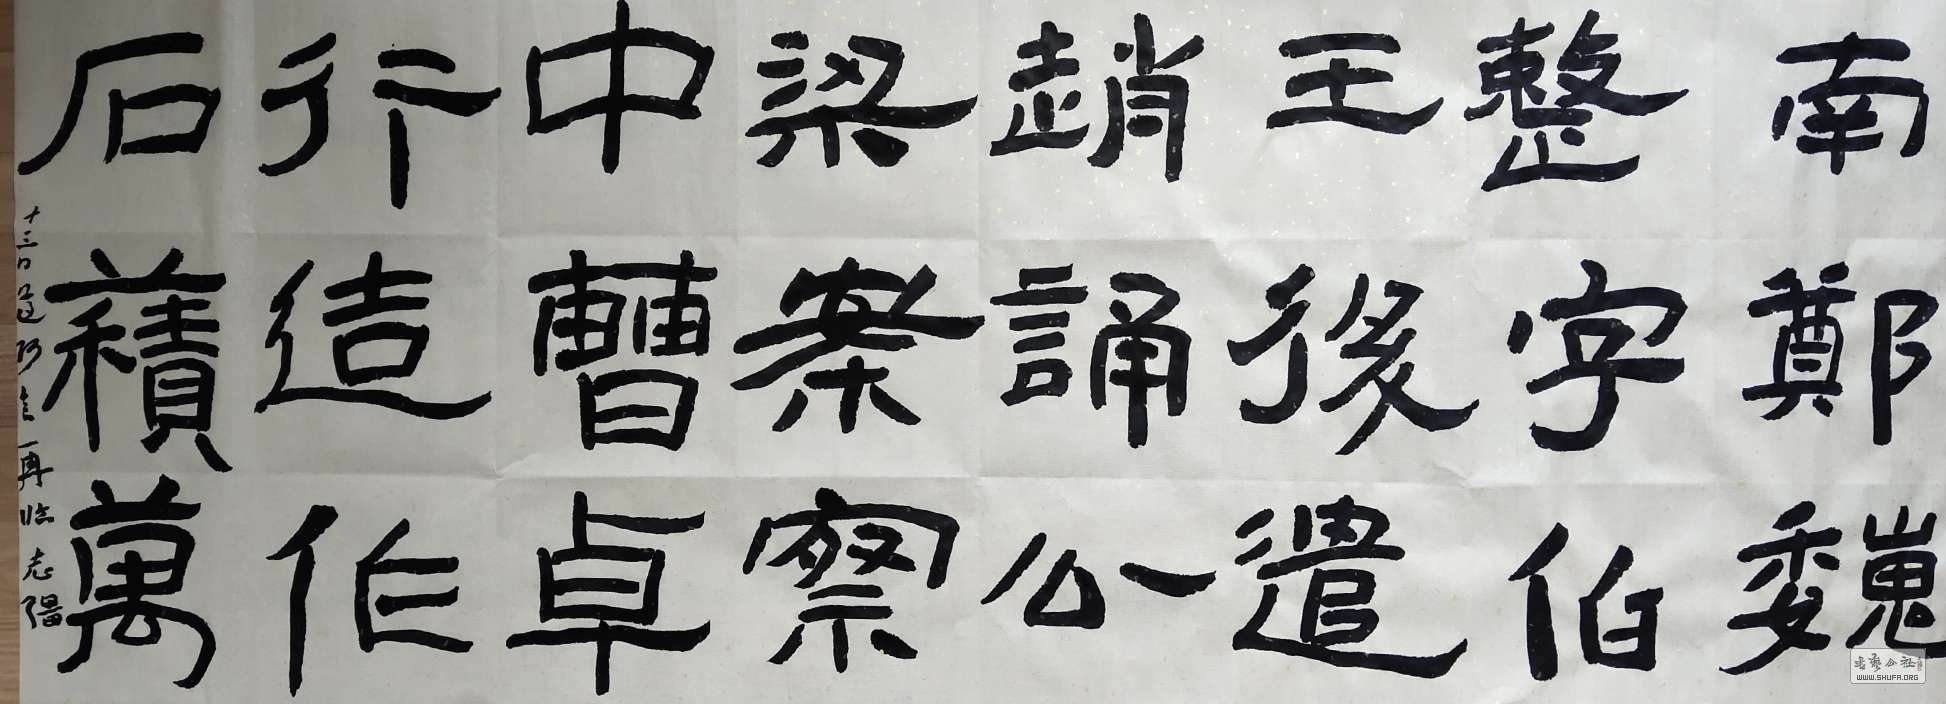 南鄭魏
整字伯
王後遣
趙誦公
梁案察
中曹卓
行造作
石積萬
十三日 再临 志
书艺公社
WWW.SHUFA.ORG